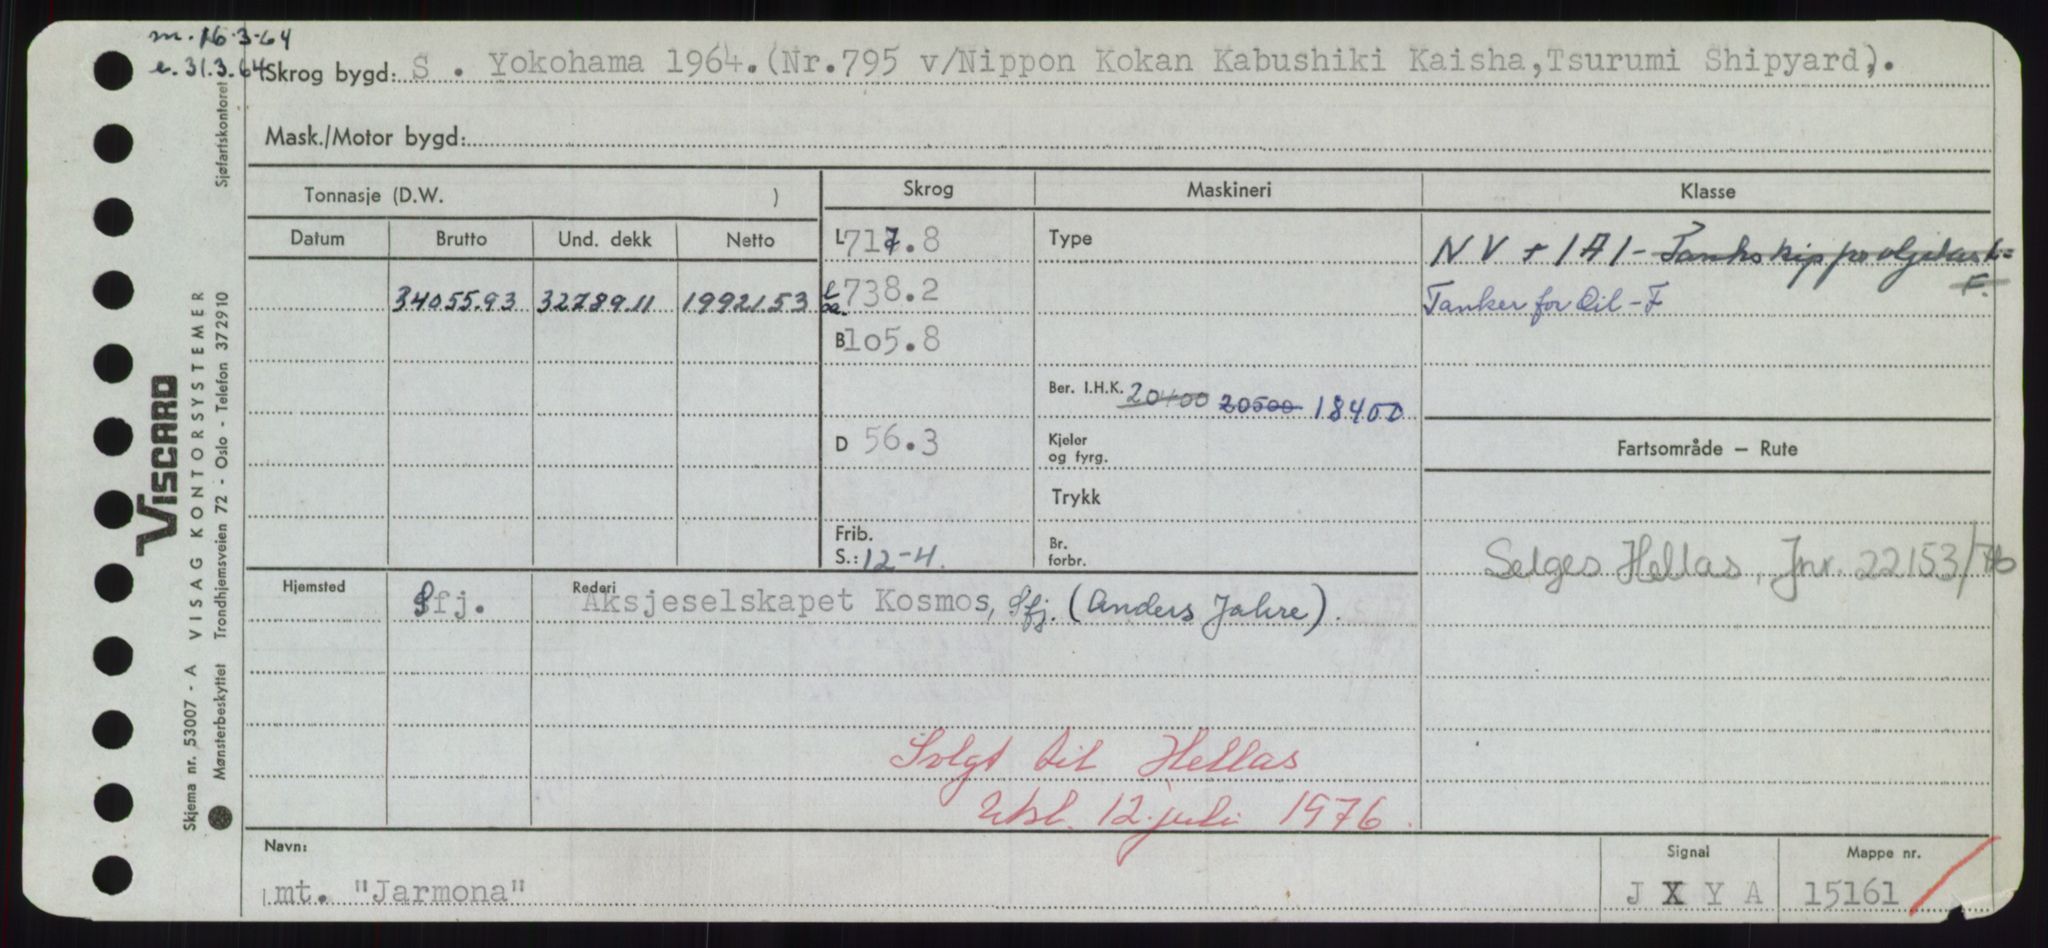 m. 16.3-64
e. 31.3.64
Skrog bygd: S . Yokohama 1964.(Nr.795 v/Nippon Kokan Kabushiki Kaisha,Tsurumi Shipyard).
Mask./Motor bygd:
Tonnasje (D.W. )
Skrog
Maskineri
Klasse
Datum Brutto Und. dekk Netto
L 717.8
Type
NV + 1A1 - Tankskip for oljelast =
F.
34055.93 32789.11 19921.53
738.2
Tanker for Oil - F
B 105.8
Ber. I.H.K. 20400 20500 18400
D 56.3
Kjeler
og fyrg.
Fartsområde — Rute
Trykk
Frib.
S.: 12-4.
Br.
forbr.
Selges Hellas, Jnr. 22153/76
Hjemsted
Rederi
Sfj. Aksjeselskapet Kosmos, Sfj. (Anders Jahre).
Solgt til Hellas
Eksl. 12. juli 1976.
Navn:
mt. "Jarmona"
Signal
J X Y A
Mappe nr.
15161
Sjøfartskontoret
VISCARD
VISAG KONTORSYSTEMER
Skjema nr. 53007 - A
Mønsterbeskyttet Trondhjemsveien 72 - Oslo - Telefon 372910